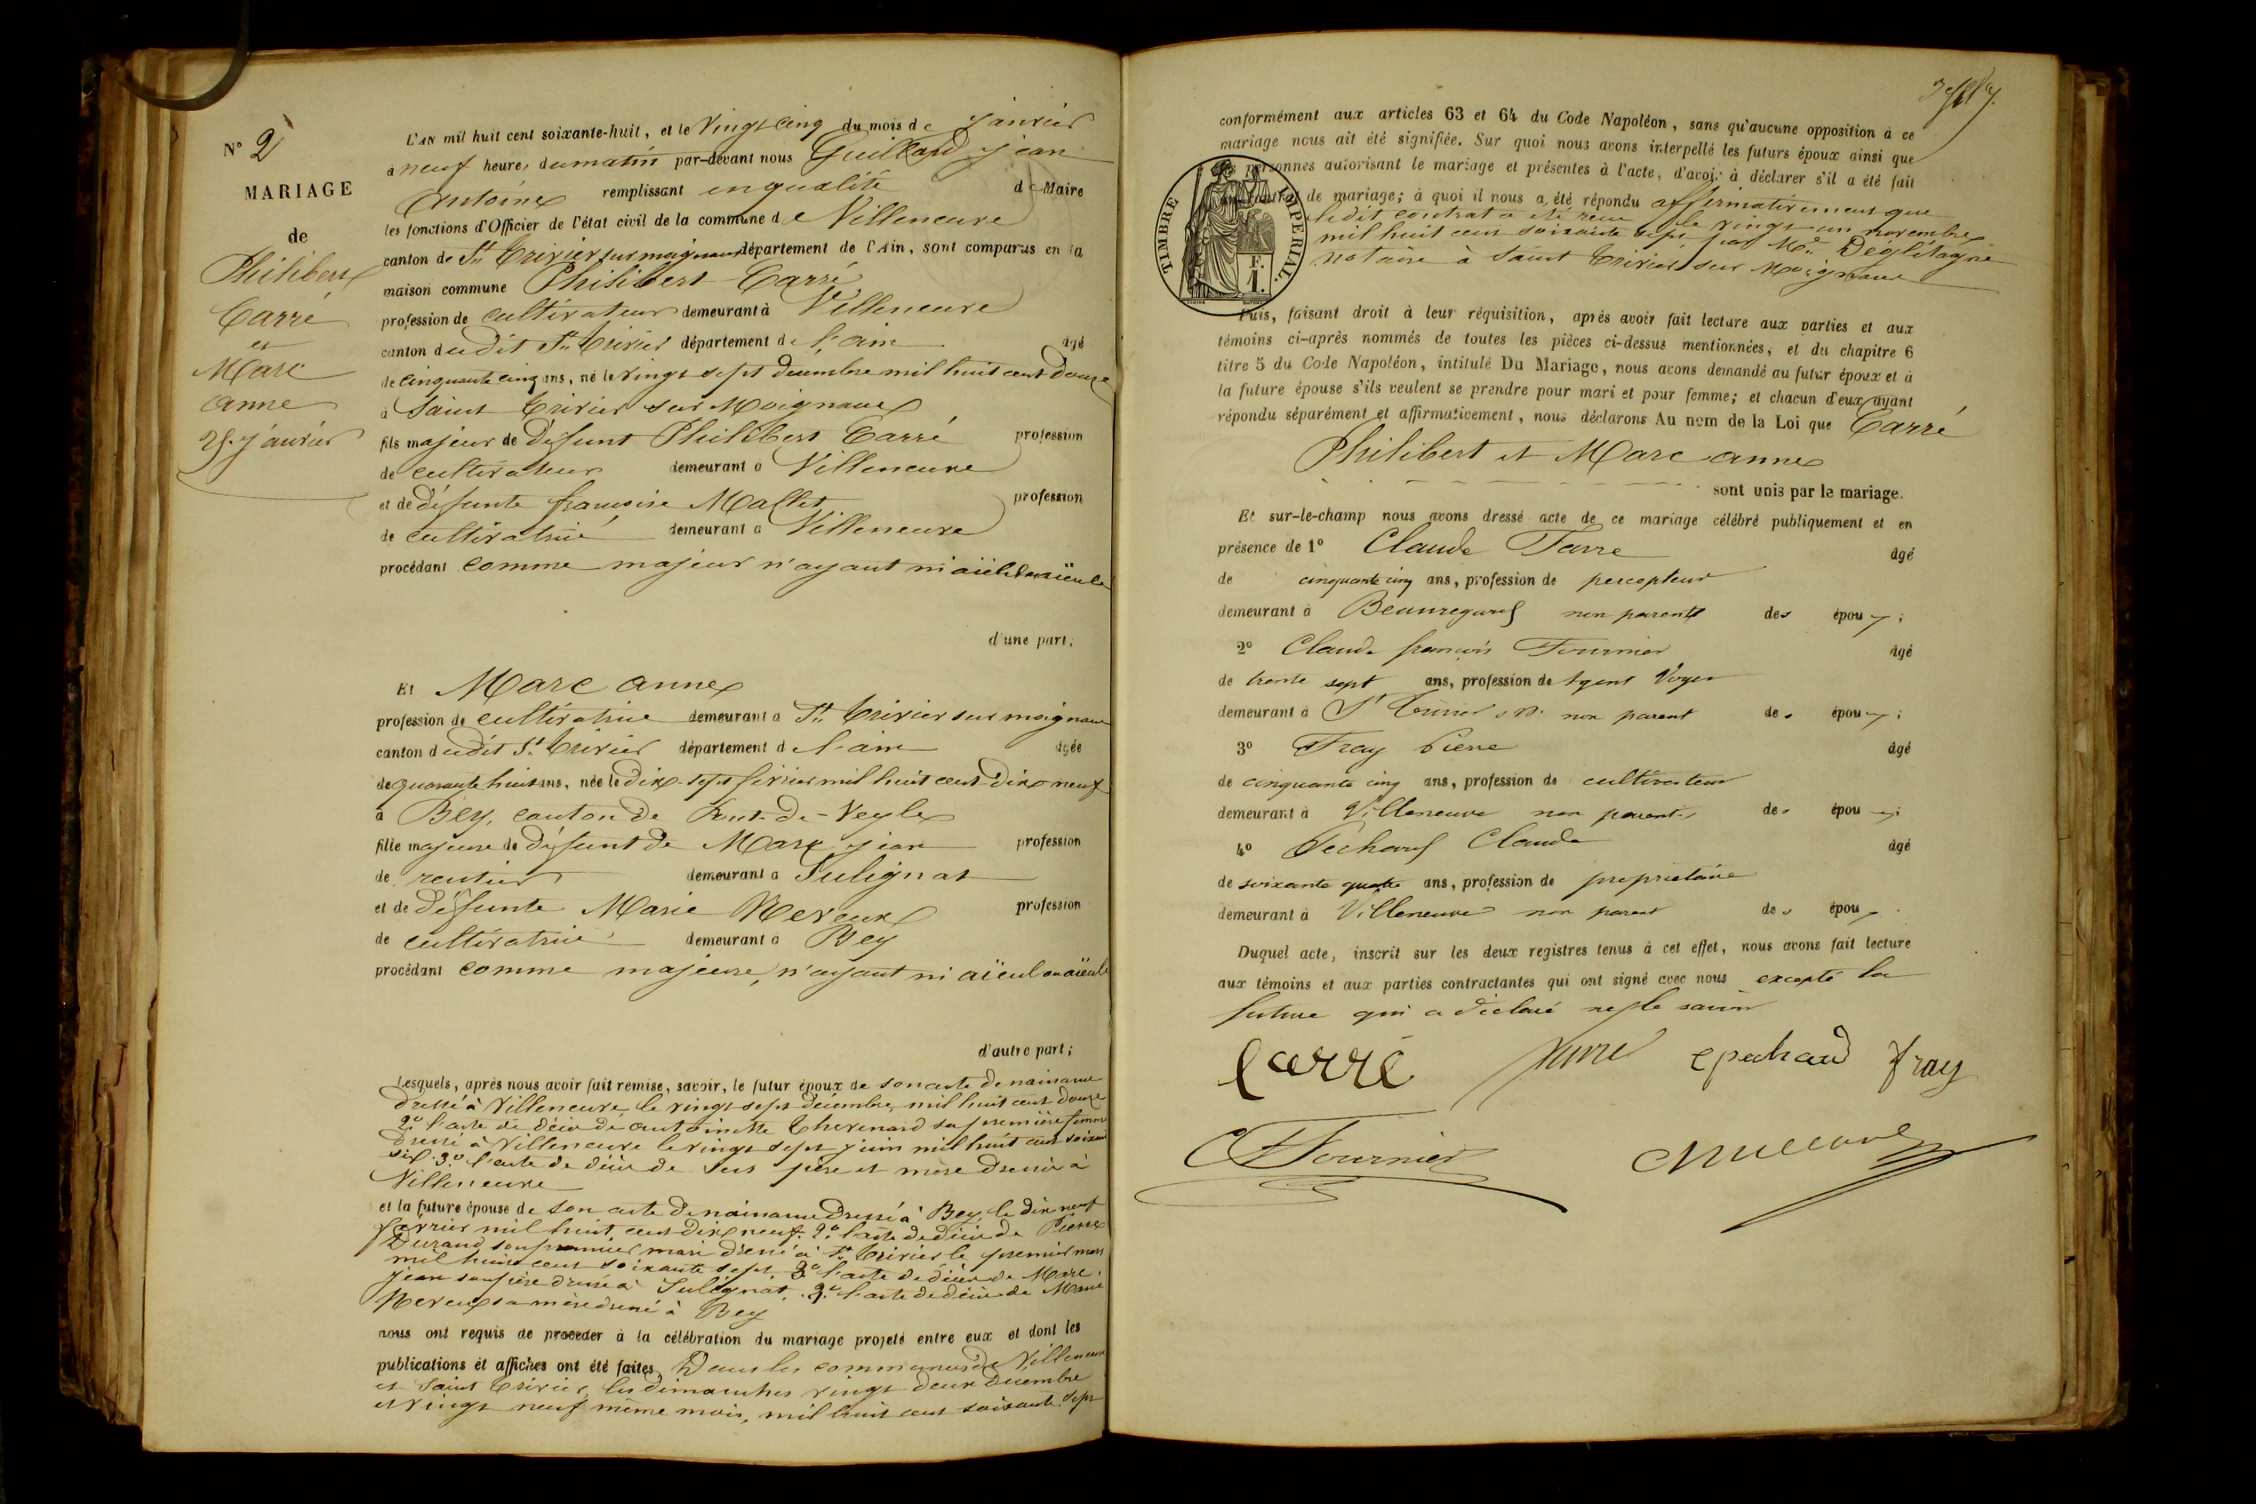 N° 2
MARIAGE
de
Philibert
Carré
et
Marc
anne
25 janvier
L'AN mil huit cent soixante-huit, et le Vingt cinq du mois de janvier
à neuf heures du matin par-devant nous Guillard jean
Antoine remplissant en qualité de Maire
les fonctions d'Officier de l'état civil de la commune de Villeneuve
canton de St Trivier sur moignans département de l'Ain, sont comparus en la
maison commune Philibert Carré
profession de cultivateur demeurant à Villeneuve
canton dudit St Trivier département de l'ain âgé
de cinquante cinq ans, né le vingt sept decembre mil huit cent Douze
à Saint Trivier sur Moignans
fils majeur de Défunt Philibert Carré profession
de cultivateur demeurant à Villeneuve
et de défunte francoise Mallet profession
de cultivatrice demeurant à Villeneuve
procédant comme majeur n'ayant ni aïeul ni aïeule
d'une part;
Et Marc anne
profession de cultivatrice demeurant à St Trivier sur moignans
canton dudit St Trivier département de l'ain âgée
de quarante huit ans, née le Dix-sept février mil huit cent Dix neuf
à Bey, canton de Pont-de-Veyle
fille majeure de défunt de Marc jean profession
de rentier demeurant à Sulignat
et de défunte Marie Neveux profession
de cultivatrice demeurant à Bey
procédant comme majeure, n'ayant ni aïeul ou aïeule
d'autre part;
Lesquels, après nous avoir fait remise, savoir, le futur époux de son acte de naissance
dressé à Villeneuve le vingt sept décembre mil huit cent douze
2° l'acte de décès de antoinette Thevenard sa première femme
dressé à Villeneuve le vingt sept juin mil huit cent soixante
six. 3° l'acte de décès de ses père et mère dressés à
Villeneuve
et la future épouse de son acte de naissance dressé à Bey le dix neuf
février mil huit cent dix neuf. 2° l'acte de décès de Pierre
Durand son premier mari dressé à St Trivier le premier mars
mil huit cent soixante sept, 3° l'acte de décès de Marc
jean son père dressé à Sulignat. 3° l'acte de décès de Marie
Neveux sa mère dressé à Bey
nous ont requis de procéder à la célébration du mariage projeté entre eux et dont les
publications et affiches ont été faites, Dans les communes de Villeneuve
et Saint Trivier, les dimanches vingt deux Decembre
et vingt neuf même mois, mil huit cent soixante sept
conformément aux articles 63 et 64 du Code Napoléon, sans qu'aucune opposition à ce
mariage nous ait été signifiée. Sur quoi nous avons interpellé les futurs époux ainsi que
les personnes autorisant le mariage et présentes à l'acte, d'avoir à déclarer s'il a été fait
contrat de mariage; à quoi il nous a été répondu affirmativement que
ledit contrat a été reçu le vingt un novembre
mil huit cent soixante sept par Me Deglitagne
notaire à Saint Trivier sur Moignans
TIMBRE IMPERIAL.
F.
1.
Puis, faisant droit à leur réquisition, après avoir fait lecture aux parties et aux
témoins ci-après nommés de toutes les pièces ci-dessus mentionnées, et du chapitre 6
titre 5 du Code Napoléon, intitulé Du Mariage, nous avons demandé au futur époux et à
la future épouse s'ils veulent se prendre pour mari et pour femme; et chacun d'eux ayant
répondu séparément et affirmativement, nous déclarons Au nom de la Loi que Carré
Philibert et Marc anne
sont unis par le mariage.
Et sur-le-champ nous avons dressé acte de ce mariage célébré publiquement et en
présence de 1° Claude Favre âgé
de cinquante cinq ans, profession de percepteur
demeurant à Beauregard non parent des époux;
2° Claude françois Fournier âgé
de trente sept ans, profession de Agent Voyer
demeurant à St Trivier s. M. non parent des époux;
3° Fray Pierre âgé
de cinquante cinq ans, profession de cultivateur
demeurant à Villeneuve non parent des époux;
4° Péchard Claude âgé
de soixante quatre ans, profession de propriétaire
demeurant à Villeneuve non parent des époux
Duquel acte, inscrit sur les deux registres tenus à cet effet, nous avons fait lecture
aux témoins et aux parties contractantes qui ont signé avec nous excepté la
future qui a déclaré ne le savoir
Carré favre C pechard fray
CFFournier